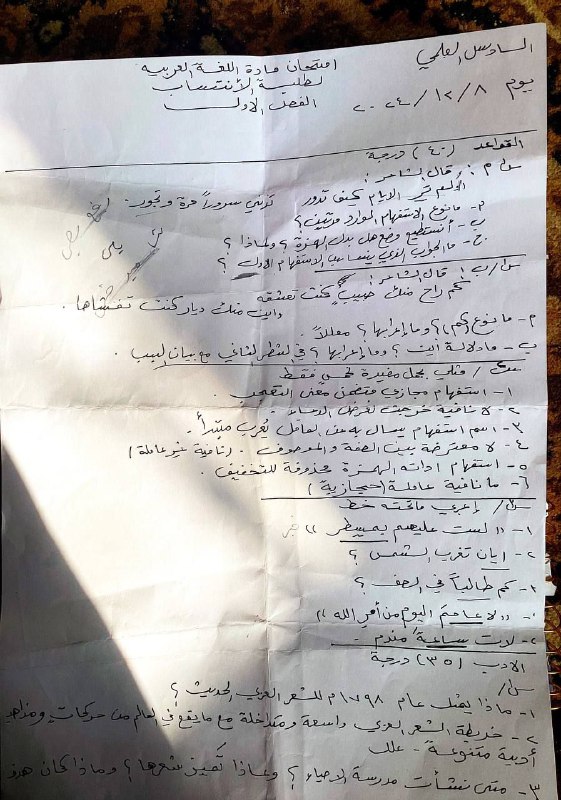 السادس العلمي
امتحان مادة اللغة العربية
لطلبة الأنتساب
يوم ٢٠٢٤/١٢/٨
الفصل الاول
القواعد (٤٠) درجة
س١/ م: قال الشاعر:
ألم تر الايام كيف تدور تزني سروراً مرة وتجور.
م- ما نوع الاستفهام الوارد مرتين؟
ب- أتستطيع وضع هل بدل الهمزة؟ ولماذا؟
ج- ما الجواب الذي يناسب الاستفهام الاول؟
س١/ب: قال الشاعر:
كم راح منك حبيبٌ كنت تعشقه
واين منك ديار كنت تغشاها.
م- ما نوع (كم)؟ وما إعرابها؟ معللاً.
ب- ما دلالة أين؟ وما إعرابها؟ في الشطر الثاني مع بيان السبب.
س٢/ مثلي بجمل مفيدة لخمس فقط
١- استفهام مجازي متضمن معنى التعجب.
٢- لا نافية خرجت لغرض الدعاء.
٣- اسم استفهام يسأل به عن العاقل يعرب مبتدأ.
٤- لا معترضة بين الصفة والموصوف. (نافية غير عاملة)
٥- استفهام اداته الهمزة محذوفة للتخفيف.
٦- ما نافية عاملة (حجازية)
س٣/ إعربي ما تحته خط
١- "لست عليهم بمسيطر"
٢- ايان تغرب الشمس؟
٣- كم طالباً في الصف؟
"لا عاصمَ اليوم من أمر الله"
لات ساعةَ مندم.
الادب (٣٥) درجة
س١/
١- ماذا يمثل عام ١٧٩٨م للشعر العربي الحديث؟
٢- خريطة الشعر العربي واسعة ومتداخلة مع ما يقع في العالم من حركات ومذاهب
أدبية متنوعة - علل
٣- متى نشأت مدرسة الاحياء؟ وبماذا تميز شعرها؟ وماذا كان هدف